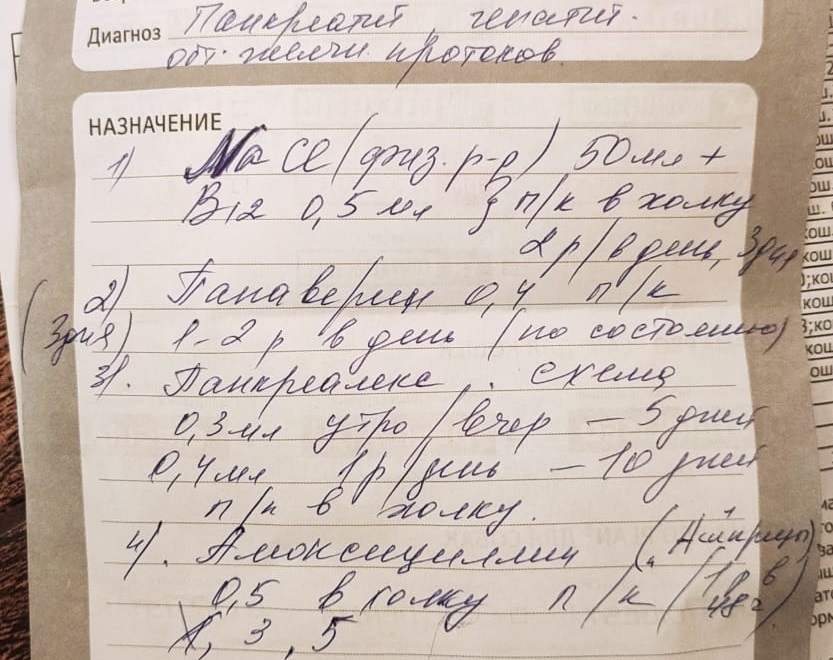 Диагноз Панкреатит, гепатит.
обт. желчн. протоков.
НАЗНАЧЕНИЕ
1) Na Cl (физ. р-р) 50 мл +
B12 0,5 мл } п/к в холку
2 р/в день, 3 дня
2) Папаверин 0,4 п/к
(3 дня) 1-2 р в день (по состоянию)
3). Панкреалекс. схема
0,3 мл утро/вечер – 5 дней
0,4 мл 1р/день – 10 дней
п/к в холку.
4). Амоксициллин
0,5 в холку п/к (1 р в
48 ч)
1, 3, 5